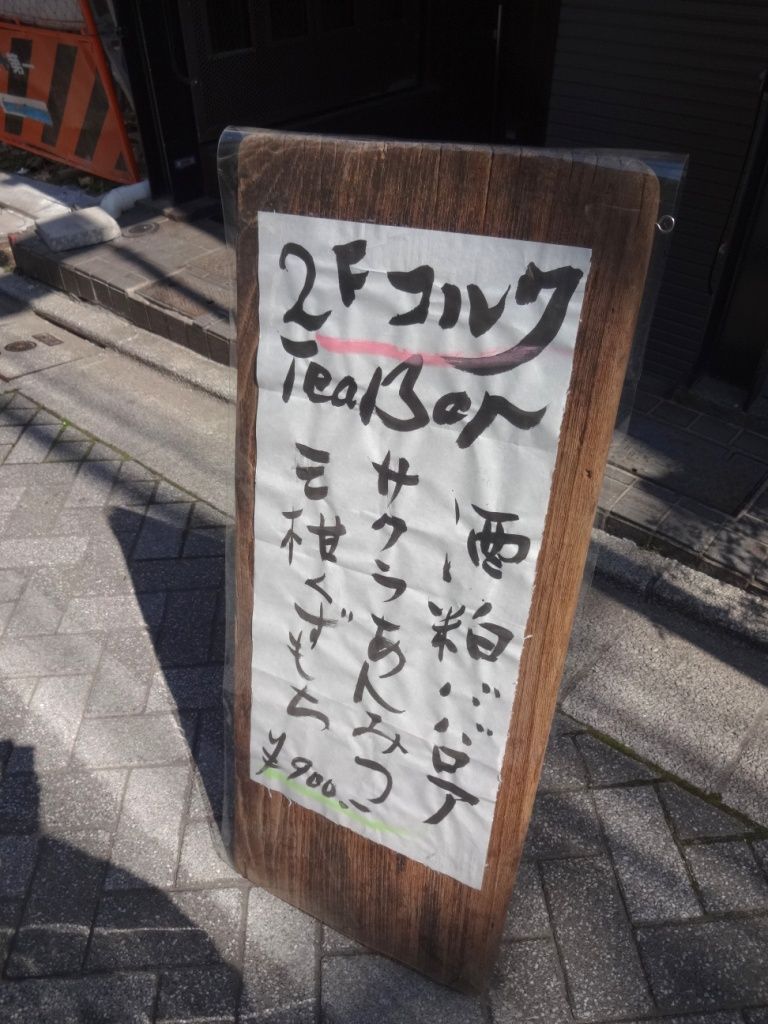 2F コルク
Tea Bar
酒粕ババロア
サクラあんみつ
くずもち
¥900.-